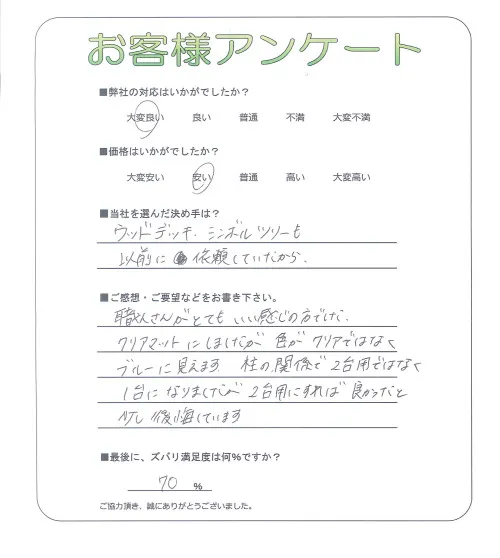 お客様アンケート
■弊社の対応はいかがでしたか？
大変良い 良い 普通 不満 大変不満
■価格はいかがでしたか？
大変安い 安い 普通 高い 大変高い
■当社を選んだ決め手は？
ウッドデッキ、シンボルツリーも
以前に 依頼していたから
■ご感想・ご要望などをお書き下さい。
職人さんがとても いい感じの方でした
クリアマットにしましたが 色が クリアではなく
ブルーに見えます 柱の関係で 2台用ではなく
1台になりましたが 2台用にすれば 良かったと
少し 後悔しています
■最後に、ズバリ満足度は何%ですか？
70 %
ご協力頂き、誠にありがとうございました。